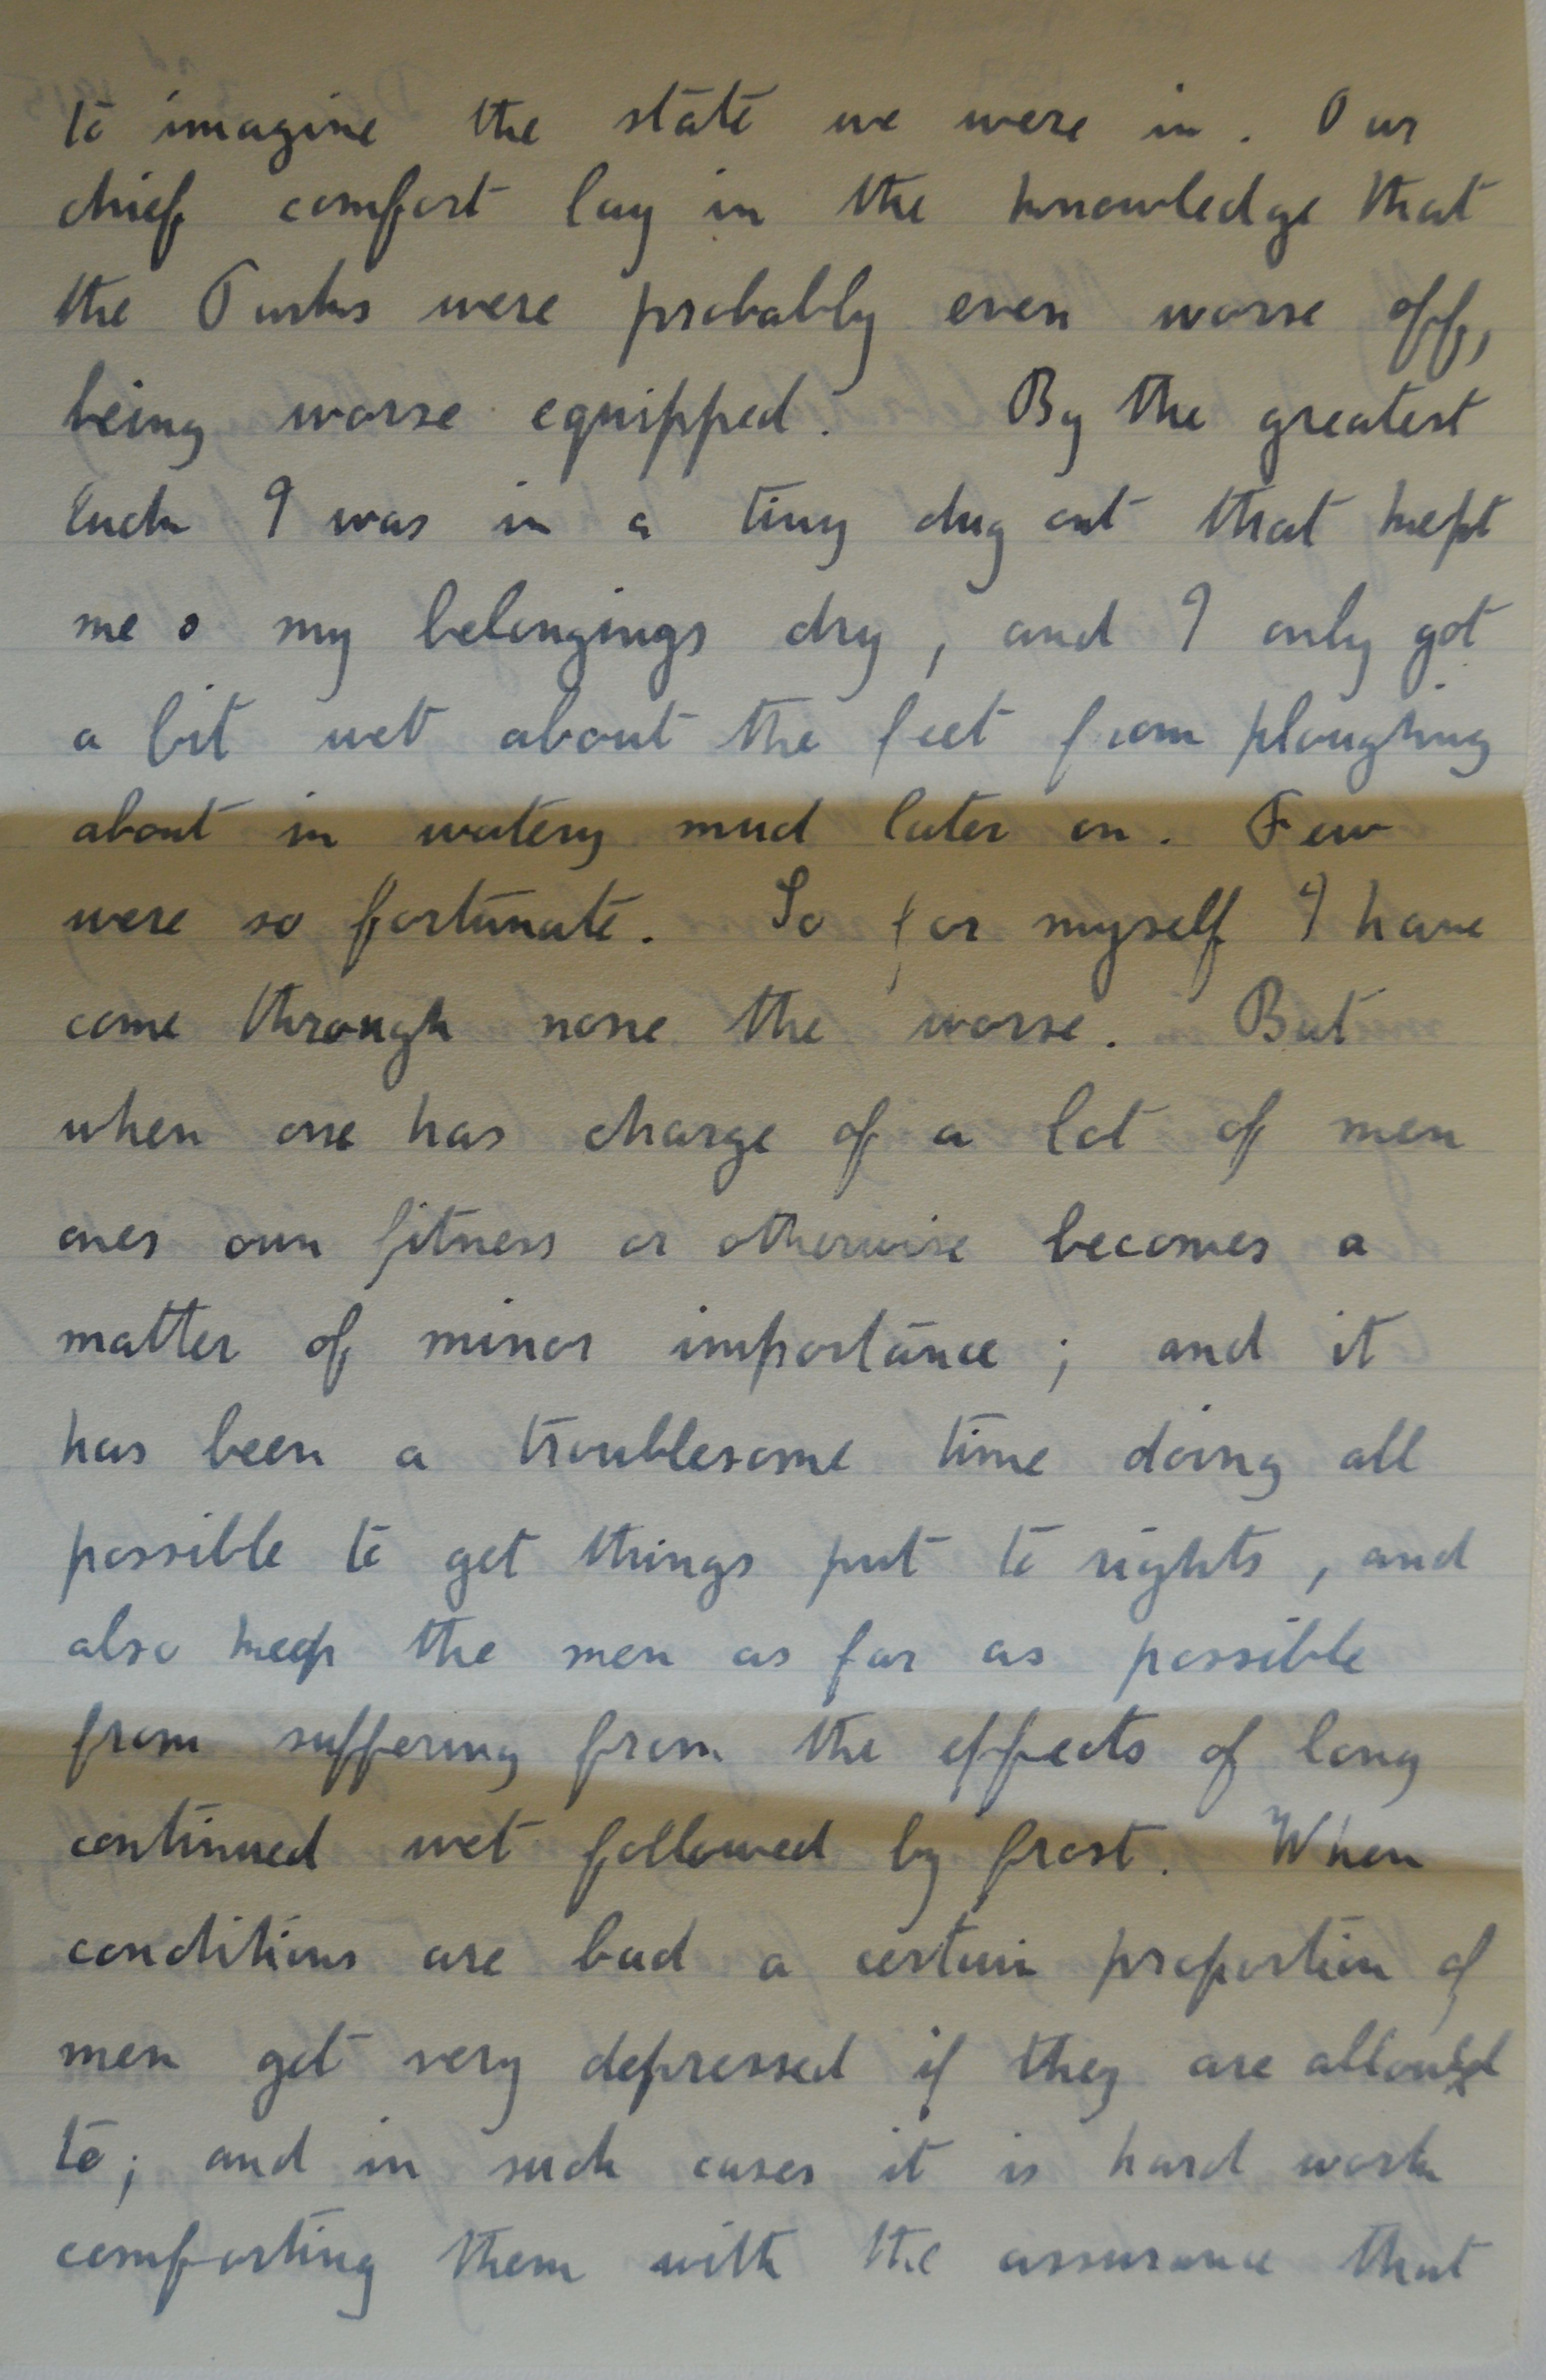 to imagine the state we were in. Our
chief comfort lay in the knowledge that
the Turks were probably even worse off,
being worse equipped. By the greatest
luck I was in a tiny dug out that kept
me & my belongings dry, and I only got
a bit wet about the feet from ploughing
about in watery mud later on. Few
were so fortunate. So for myself I have
come through none the worse. But
when one has charge of a lot of men
ones own fitness or otherwise becomes a
matter of minor importance; and it
has been a troublesome time doing all
possible to get things put to rights, and
also keep the men as far as possible
from suffering from the effects of long
continued wet followed by frost. When
conditions are bad a certain proportion of
men get very depressed if they are allowed
to; and in such cases it is hard work
comforting them with the assurance that